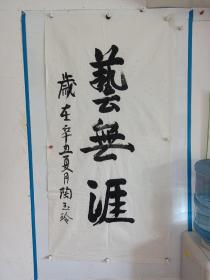 藝無涯
歲在辛丑夏月陶玉玲